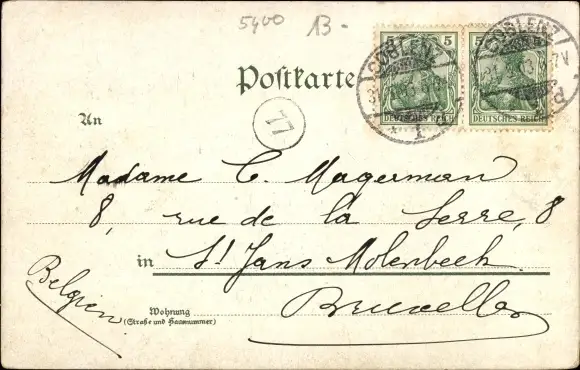 5400 13-
5 5
COBLENZ COBLENZ
DEUTSCHES REICH DEUTSCHES REICH
Postkarte
77
An
Madame C. Magerman
8, rue de la Serre, 8
in St Jans Molenbeek
Bruxelles
Belgien
Wohnung
(Straße und Hausnummer)